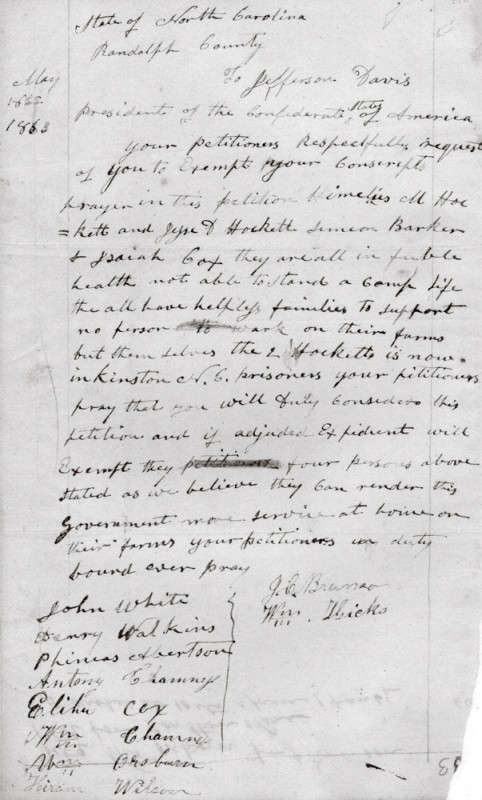 State of North Carolina
Randolph County
May
1863
To Jefferson Davis
President of the Confederate States of America
your Petitioners Respectfully request
of you to Exempt your Conscripts
prayer in this petition Himelius M Hoc
=kett and Jesse D Hockett Simeon Barker
& Isaiah Cox they are all in feeble
health not able to stand a Camp Life
the all have helpless families to support
no person to work on their farms
but them selves the 2 Hocketts is now
in Kinston N.C. prisoners your pititioners
pray that you will duly Consider this
petition and if adjudged Expidient will
Exempt they four persons above
stated as we believe they Can render this
Government more service at home on
their farms your petitioners in duty
bound ever pray
John White
Henry Watkins
Phineas Albertson
Antony Chamness
Elihu Cox
Wm Chamness
Osburn
Hiram Wilson
Wm Hicks